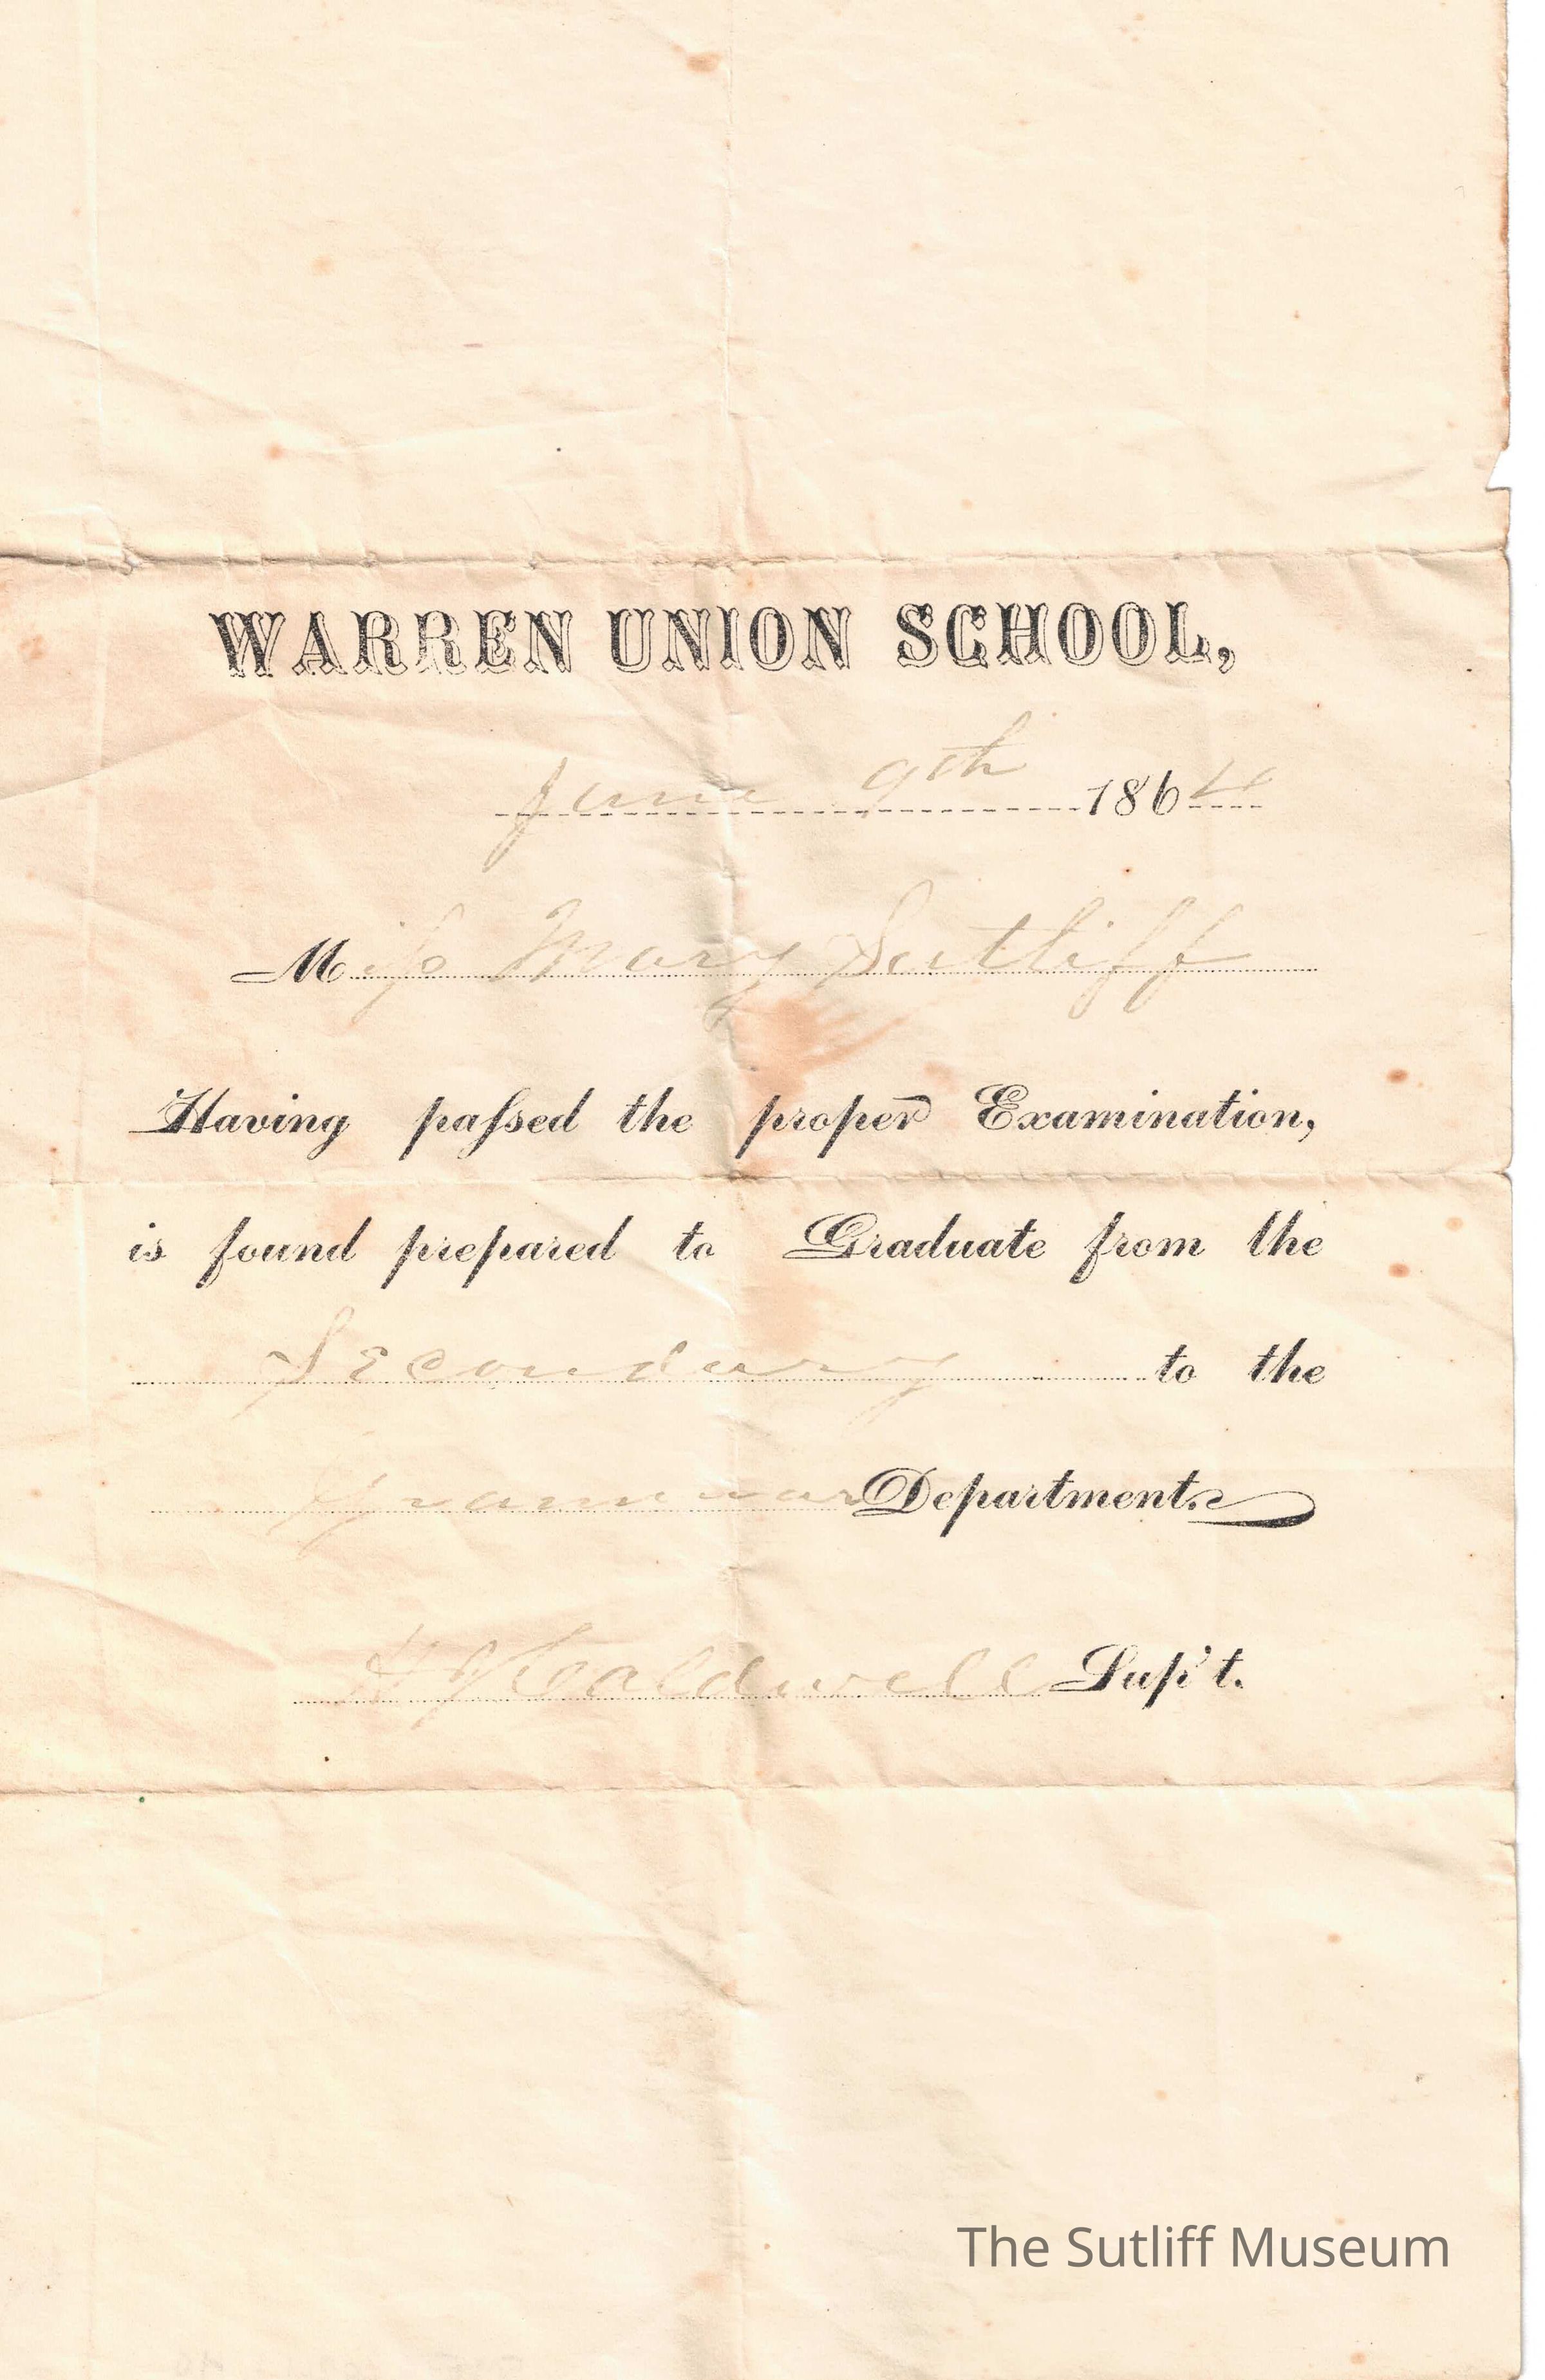 WARREN UNION SCHOOL,
June 9th 1864
Miſs Mary Sutliff
Having paſsed the proper Examination,
is found prepared to Graduate from the
Secondary to the
Grammar Department.
Caldwell Sup't.
The Sutliff Museum